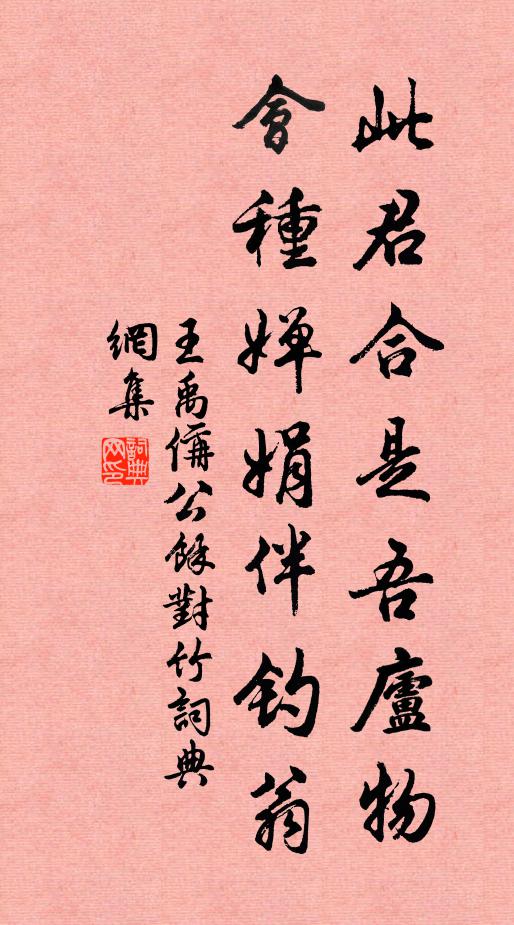 此君合是吾廬物
會種嬋娟伴釣翁
王禹偁公餘對竹詞典
網集
詞典網印